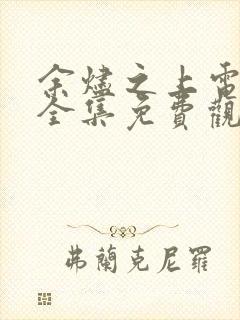 余燼之上電
全集免費觀
弗蘭克尼羅